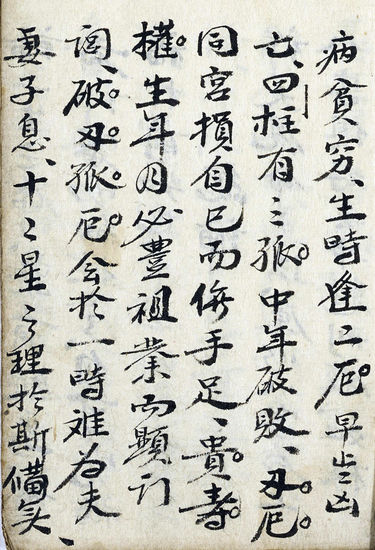 病貧穷、生時逢二厄。早凶
亡、四柱有三孤。中年破敗、刃。厄。
同宮損自己而傷手足、貴。壽。
權。生年月必豐祖業而顯门
词、破。刃。孤。厄。会於一時难为夫
妻子息、十二星之理於斯備矣、